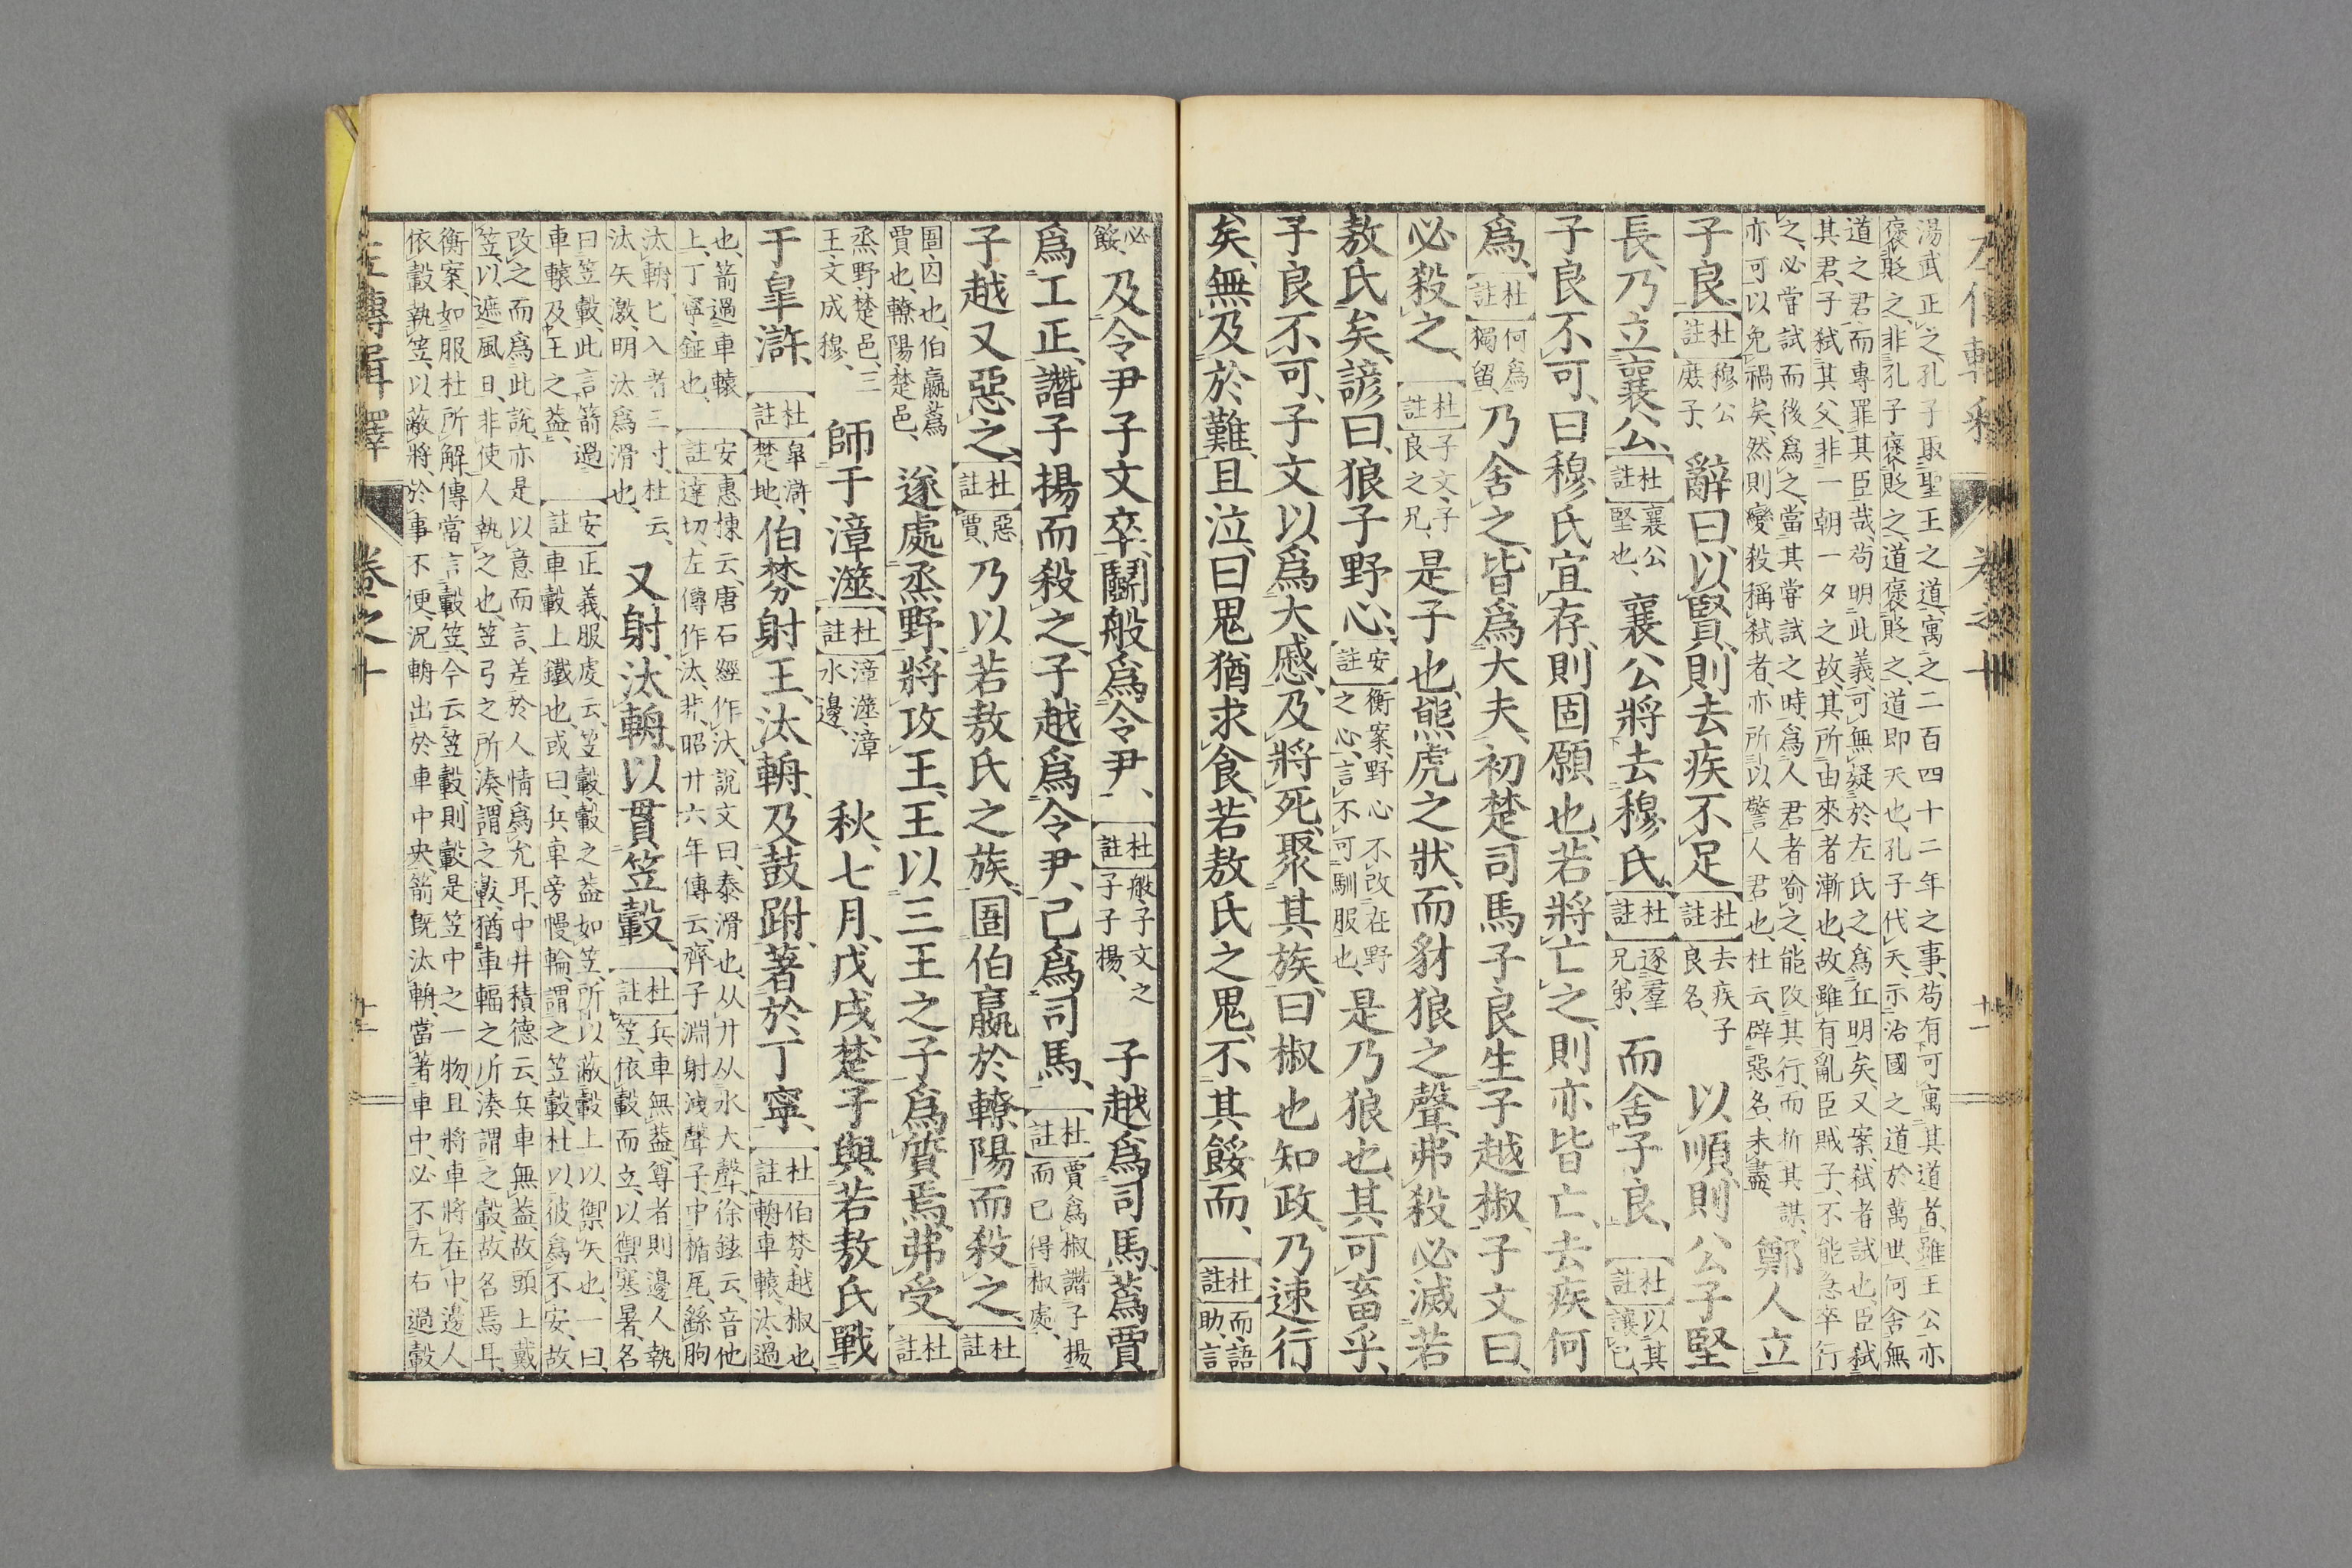 左傳輯釋 卷之十 十一
湯武正之、孔子取聖王之道、寓之二百四十二年之事、苟有可寓其道者、雖王公亦
褒貶之、非孔子褒貶之、道褒貶之、道即天也、孔子代天、示治國之道於萬世、何舍無
道之君、而專罪其臣哉、苟明此義、可無疑於左氏之爲丘明矣、又案、弑者試也、臣弑
其君、子弑其父、非一朝一夕之故、其所由來者漸也、故雖有亂臣賊子、不能急卒行
之、必嘗試而後爲之、當其嘗試之時、爲人君者喻之、能改其行、而折其謀、
亦可以免禍矣、然則變殺稱弑者、亦所以警人君也、杜云、辟惡名、未盡、
鄭人立
子良、杜註 穆公庶子、辭曰、以賢、則去疾不足、杜註 去疾、子良名、以順、則公子堅
長、乃立襄公、杜註 襄公堅也、襄公將去穆氏、杜註 逐羣兄弟、而舍子良、杜註 以其讓己、
子良不可、曰、穆氏宜存、則固願也、若將亡之、則亦皆亡、去疾何
爲、杜註 何爲獨留、乃舍之、皆爲大夫、初楚司馬子良生子越椒、子文曰、
必殺之、杜註 子文、子良之兄、是子也、熊虎之狀、而豺狼之聲、弗殺必滅若
敖氏矣、諺曰、狼子野心、安註 衡案、野心不改在野之心、言不可馴服也、是乃狼也、其可畜乎、
子良不可、子文以爲大慼、及將死、聚其族、曰、椒也知政、乃速行
矣、無及於難、且泣曰、鬼猶求食、若敖氏之鬼、不其餒而、杜註 而、語助、言
必餒、及令尹子文卒、鬭般爲令尹、杜註 般、子文之子子揚、子越爲司馬、蔿賈
爲工正、譖子揚而殺之、子越爲令尹、己爲司馬、杜註 賈爲椒譖子揚、而己得椒處、
子越又惡之、杜註 惡賈、乃以若敖氏之族、圄伯嬴於轑陽而殺之、杜註
圄、囚也、伯嬴、蔿賈也、轑陽、楚邑、遂處烝野、將攻王、王以三王之子爲質焉、弗受、杜註
烝野、楚邑、三王、文成穆、師于漳澨、杜註 漳澨、漳水邊、秋、七月、戊戌、楚子與若敖氏戰
于皐滸、杜註 皐滸、楚地、伯棼射王、汰輈、及鼓跗、著於丁寧、杜註 伯棼、越椒也、輈、車轅、汰、過
也、箭過車轅上、丁寧、鉦也、安註 惠棟云、唐石經作汏、說文曰、泰滑也、从廾从水大聲、徐鉉云、音他達切、左傳作汰、非、昭廿六年傳云、齊子淵射洩聲子、中楯瓦、繇朐
汰輈、匕入者三寸、杜云、汰矢激、明汰爲滑也、又射、汰輈、以貫笠轂、杜註 兵車無蓋、尊者則邊人執笠、依轂而立、以禦寒暑、名
曰笠轂、此言箭過車轅、及王之蓋、安註 正義、服虔云、笠轂、轂之蓋如笠、所以蔽轂上以禦矢也、一曰、車轂上鐵也、或曰、兵車旁幔輪、謂之笠轂、杜以彼爲不安、故
改之而爲此說、亦是以意而言、差於人情爲允耳、中井積德云、兵車無蓋、故頭上戴
笠、以遮風日、非使人執之也、笠弓之所湊、謂之轂、猶車輻之所湊謂之轂、故名焉耳、
衡案、如服杜所解、傳當言轂笠、今云笠轂、則轂是笠中之一物、且將車將在中、邊人
依轂執笠、以蔽將、於事不便、況輈出於車中央、箭既汰輈、當著車中、必不左右過轂
左傳輯釋 卷之十